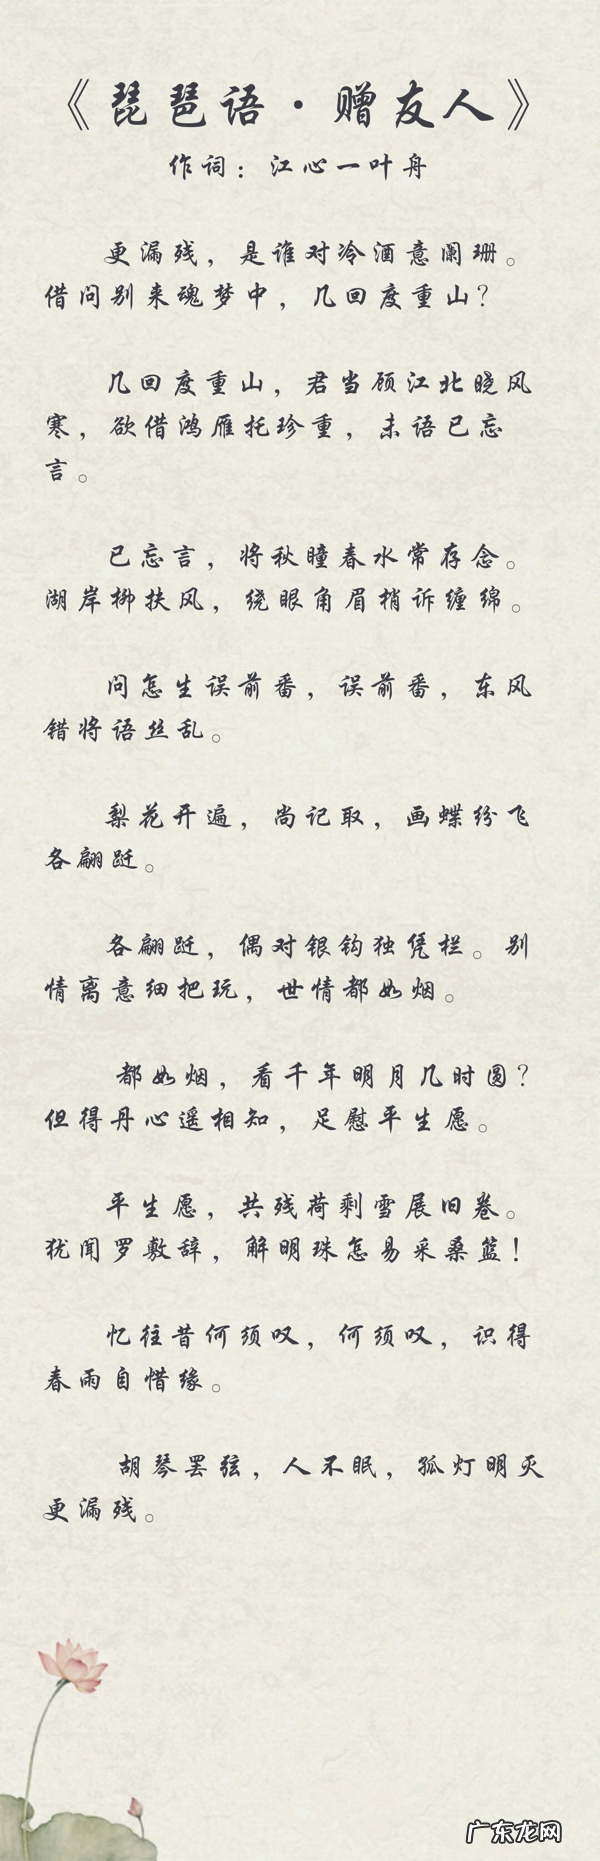 《琵琶语·赠友人》
作词：江心一叶舟
更漏残，是谁对冷酒意阑珊。
借问别来魂梦中，几回度重山？
几回度重山，君当顾江北晓风
寒，欲借鸿雁托珍重，未语已忘
言。
已忘言，将秋瞳春水常存念。
湖岸柳扶风，绕眼角眉梢诉缠绵。
问怎生误前番，误前番，东风
错将语丝乱。
梨花开遍，尚记取，画蝶纷飞
各翩跹。
各翩跹，偶对银钩独凭栏。别
情离意细把玩，世情都如烟。
都如烟，看千年明月几时圆？
但得丹心遥相知，足慰平生愿。
平生愿，共残荷剩雪展旧卷。
犹闻罗敷辞，解明珠怎易采桑篮！
忆往昔何须叹，何须叹，识得
春雨自惜缘。
胡琴罢弦，人不眠，孤灯明灭
更漏残。
广东龙网